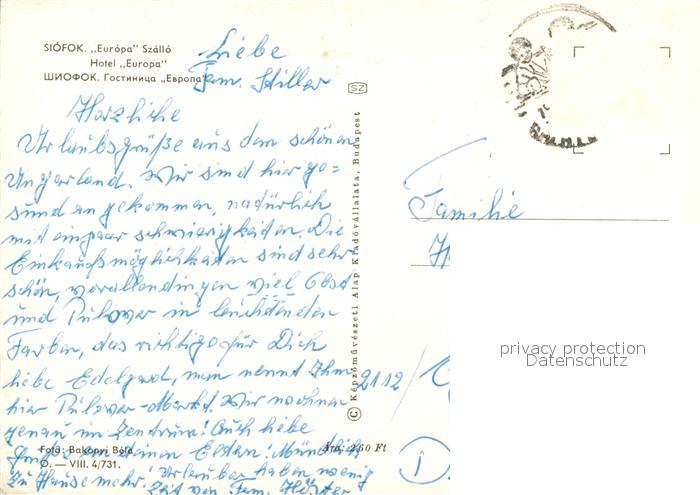 SIÓFOK. „Európa” Szálló
Hotel „Europa”
ШИОФОК. Гостиница „Европа”
Liebe
Fam. Stiller
Herzliche
Urlaubsgrüße aus dem schönen
Ungarland. Wir sind hier ge=
sund angekommen, natürlich
mit ein paar schwierigkeiten. Die
Einkaufsmöglichkeiten sind sehr
schön, vorallendingen viel Obst
und Pulover in leuchtenden
Farben, das richtige für Dich
liebe Edelgard, man nennt ihn
hier Pulover-Markt. Wir wohnen
genau im Zentrum! Auch liebe
Grüße deinen Eltern! Mündlich
zu Hause mehr! Urlauber haben wenig
Zeit von Fam. Höster
Foto: Bakonyi Béla
Ø. — VIII. 4/731.
Ára: 2,60 Ft
SZ
© Képzőművészeti Alap Kiadóvállalata, Budapest
Familie
H
2112/
privacy protection
Datenschutz